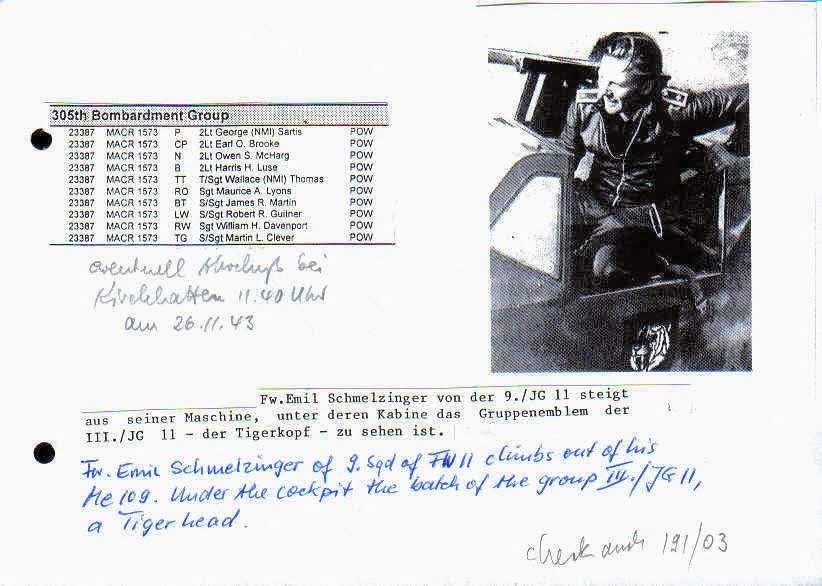 305th Bombardment Group
23387 MACR 1573 P 2Lt George (NMI) Sartis POW
23387 MACR 1573 CP 2Lt Earl O. Brooke POW
23387 MACR 1573 N 2Lt Owen S. McHarg POW
23387 MACR 1573 B 2Lt Harris H. Luse POW
23387 MACR 1573 TT T/Sgt Wallace (NMI) Thomas POW
23387 MACR 1573 RO Sgt Maurice A. Lyons POW
23387 MACR 1573 BT S/Sgt James R. Martin POW
23387 MACR 1573 LW S/Sgt Robert R. Guilner POW
23387 MACR 1573 RW Sgt William H. Davenport POW
23387 MACR 1573 TG S/Sgt Martin L. Clever POW
eventuell Abschuß bei
Kirchhatten 11.40 Uhr
am 26.11.43
Fw.Emil Schmelzinger von der 9./JG 11 steigt
aus seiner Maschine, unter deren Kabine das Gruppenemblem der
III./JG 11 - der Tigerkopf - zu sehen ist.
Fw. Emil Schmelzinger of 9. Sqd of FW 11 climbs out of his
Me 109. Under the cockpit the batch of the group III./JG 11,
a Tiger head.
check auch 191/03